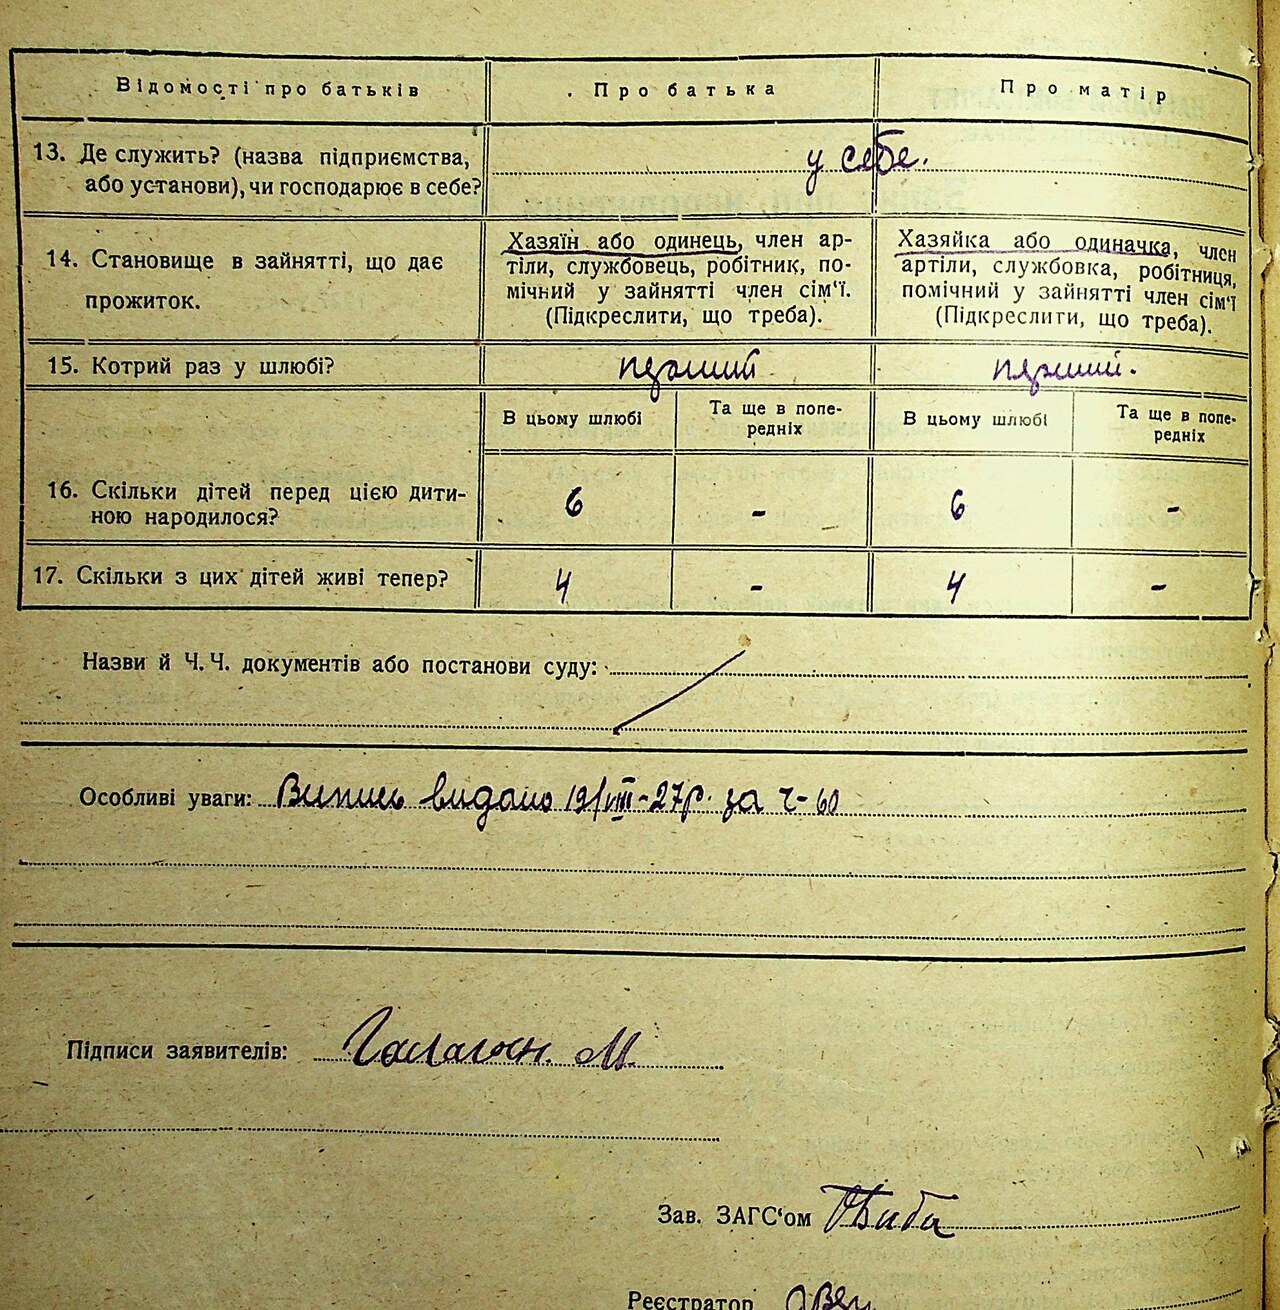 Відомості про батьків Про батька Про матір
13. Де служить? (назва підприємства, у себе.
або установи), чи господарює в себе?
Хазяїн або одинець, член ар- Хазяйка або одиначка, член
14. Становище в зайнятті, що дає тіли, службовець, робітник, по- артіли, службовка, робітниця,
прожиток. мічний у зайнятті член сім'ї. помічний у зайнятті член сім'ї
(Підкреслити, що треба). (Підкреслити, що треба).
15. Котрий раз у шлюбі? перший перший.
В цьому шлюбі Та ще в попе- В цьому шлюбі Та ще в попе-
редніх редніх
16. Скільки дітей перед цією дити- 6 - 6 -
ною народилося?
17. Скільки з цих дітей живі тепер? 4 - 4 -
Назви й Ч. Ч. документів або постанови суду:
Особливі уваги: Випись видано 19/VIII-27р. за ч-60
Підписи заявителів: Галаган. М.
Зав. ЗАГС'ом
Реєстратор